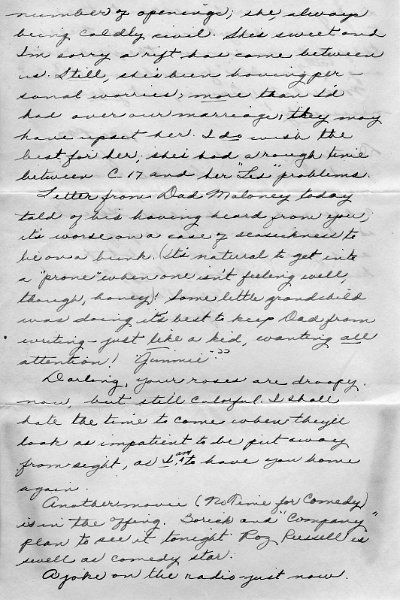 number of openings; she, always
being coldly civil. She's sweet and
I'm sorry a rift has come between
us. Still, she's been having per-
sonal worries, more than I'd
had over our marriage; they may
have upset her. I do wish the
best for her; she's had a rough time
between C-17 and her problems.
Letter from Dad Maloney today
told of his having heard from you;
it's worse on a case of seasickness to
be on a bunk. (It's natural to get into
a "prone" when one isn't feeling well,
though, honey)! Some little grandchild
was doing its best to keep Dad from
writing - just like a kid, wanting all
attention! "Gimmie"??
Darling, your roses are droopy
now, but still colorful. I shall
hate the time to come when they'll
look as impatient to be put away
from sight, as I am to have you home
again.
Another movie (No Time for Comedy)
is in the offing. and "Company"
plan to see it tonight. Roz Russell is
swell as comedy star.
A joke on the radio just now.